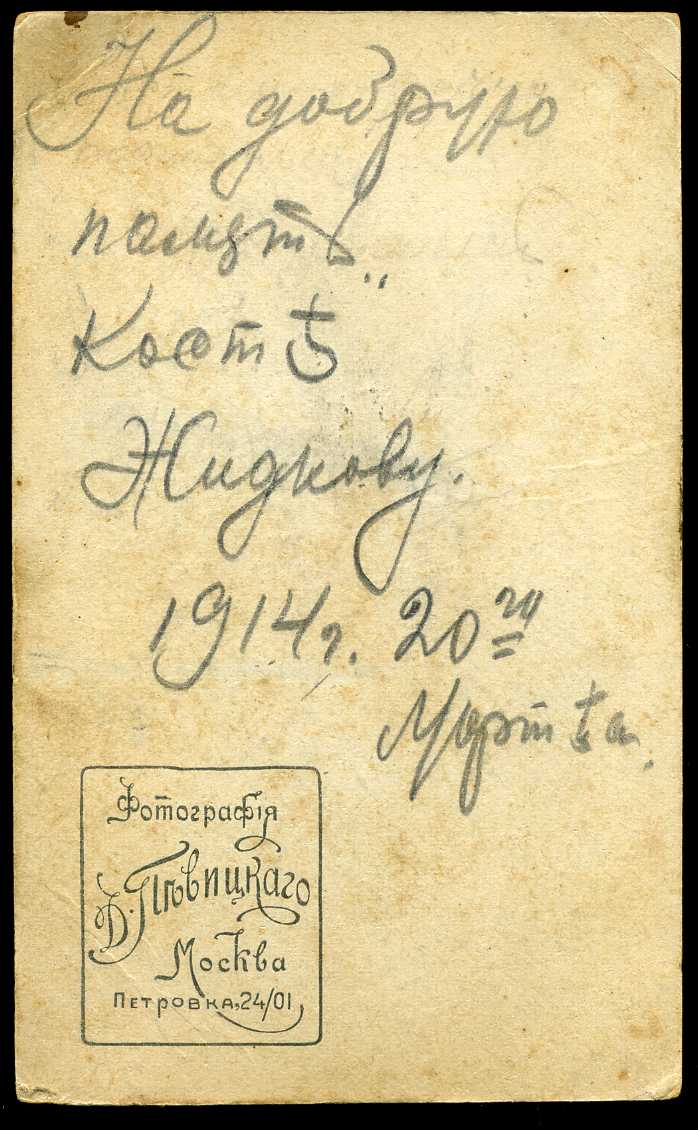 На добрую
память
Костѣ
Жидкову.
1914г. 20го
Марта.
Фотографія
Д. Пѣвицкаго
Москва
Петровка, 24/01